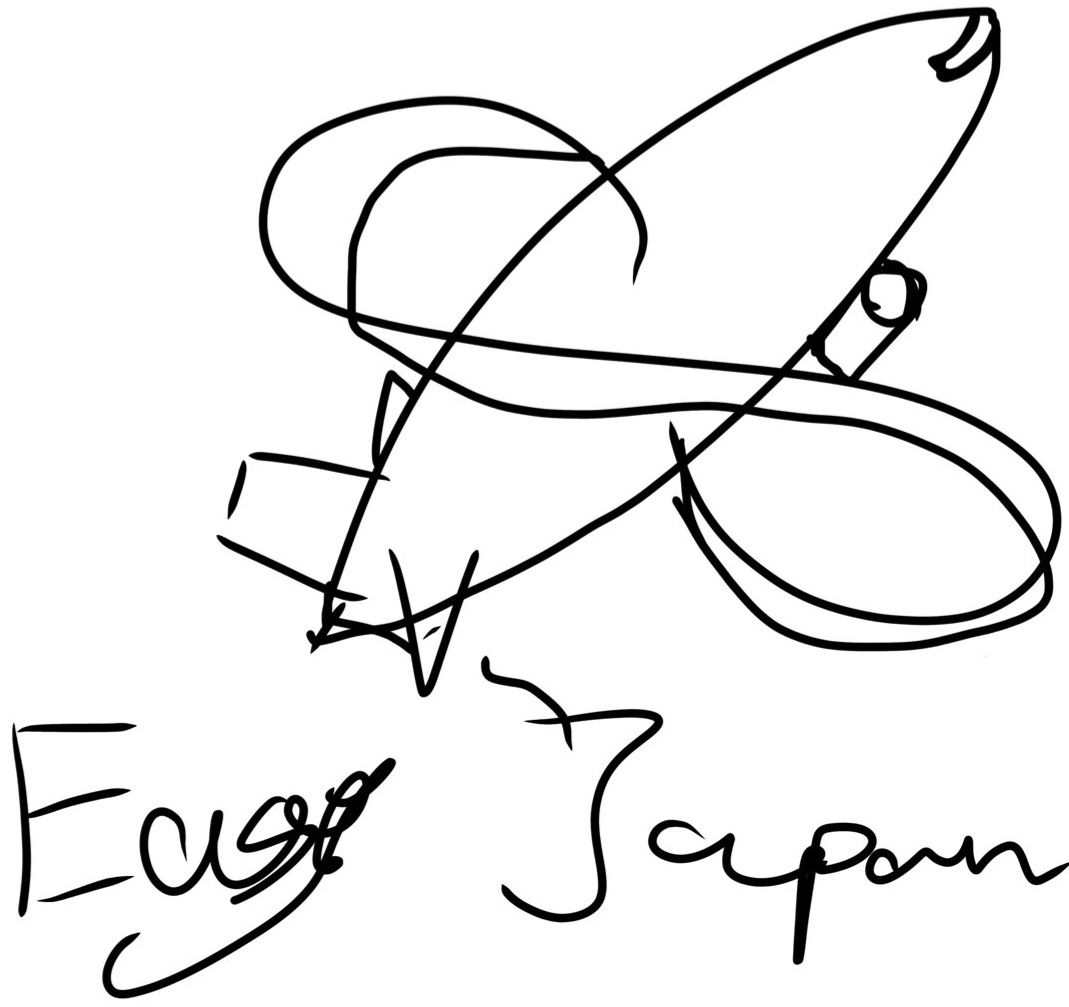 Easy Japan